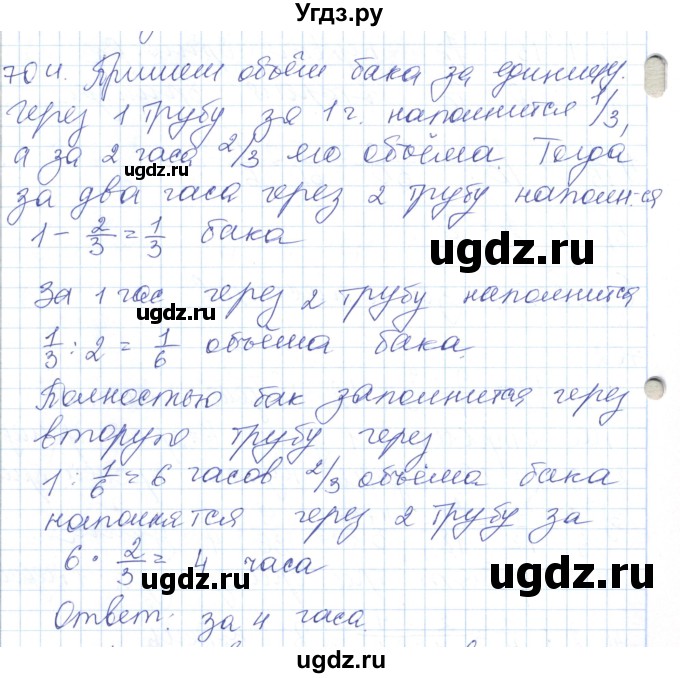 Угдз.ру
704. Примем объём бака за единицу.
Через 1 трубу за 1 ч. наполнится 1/3,
а за 2 часа 2/3 его объёма. Тогда
угдз.ру
за два часа через 2 трубу наполн-ся
1 - 2/3 = 1/3 бака
угдз.ру
За 1 час через 2 трубу наполнится
угдз.ру
1/3 : 2 = 1/6 объёма бака.
Полностью бак заполнится через
вторую трубу через
угдз.ру
1 : 1/6 = 6 часов 2/3 объёма бака
наполнятся через 2 трубу за
6 · 2/3 = 4 часа
угдз.ру
угдз.ру
Ответ: за 4 часа.
угдз.ру